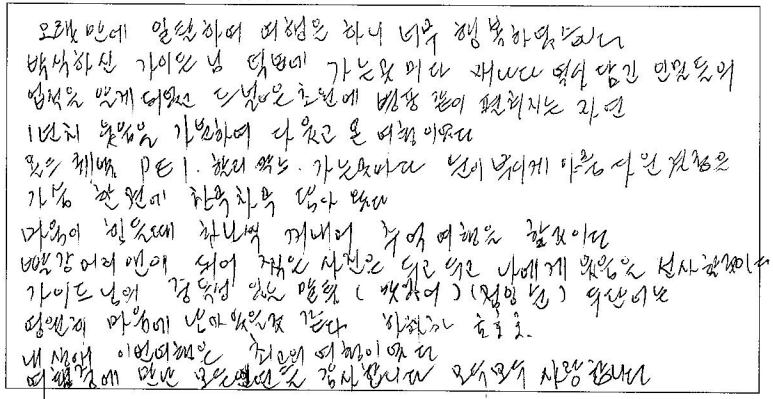 오랫만에 일탈하여 여행을 하니 너무 행복하였습니다
박식하신 가이드님 덕분에 가는곳마다 캐나다 역사 담긴 인물들의
업적을 알게 되었고 드넓은 초원에 병풍 같이 펼쳐지는 자연
1년치 웃음을 가불하여 다 웃고 온 여행이였다
몽스 퀘벡 PEI. 할리팍스. 가는곳마다 눈이 부시게 아름다운 절경을
가슴 한편에 차곡차곡 담아 왔다
마음이 힘들때 하나씩 꺼내어 추억여행을 할것이다
빨강머리앤이 되어 찍은 사진은 두고 두고 나에게 웃음을 선사할것이다
가이드님의 중독성 있는 말투 ( ) ( )
영원히 마음에 남아있을것 같다 하하하 호호호.
내 생애 이번여행은 최고의 여행이였다
여행중에 만난 모든인연들 감사합니다 모두모두 사랑합니다